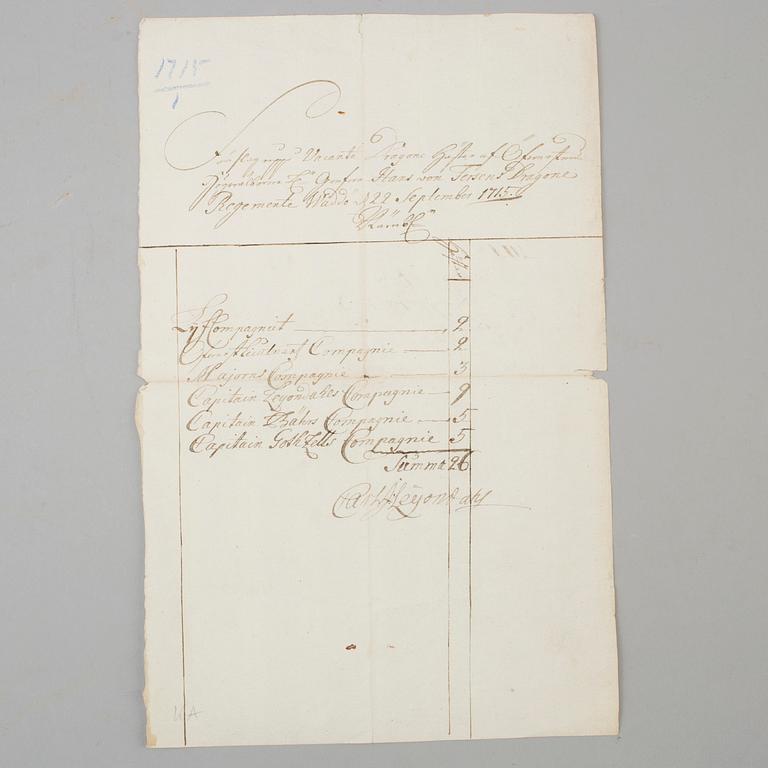 1715
1
Förslag uppå Vacante Dragone Hästar af Öfwerstens
Högwälborne H:r Grefwe Hans von Fersens Dragone
Regemente Wäddö d 22 September 1715.
Hästar
Lyf Compagniet 2
Öfwerst Lieutnant Compagnie 2
Majorns Compagnie 3
Capitain Leyondahls Compagnie 9
Capitain Bährs Compagnie 5
Capitain Gothzells Compagnie 5
Summa 26
Carl Leyondahl